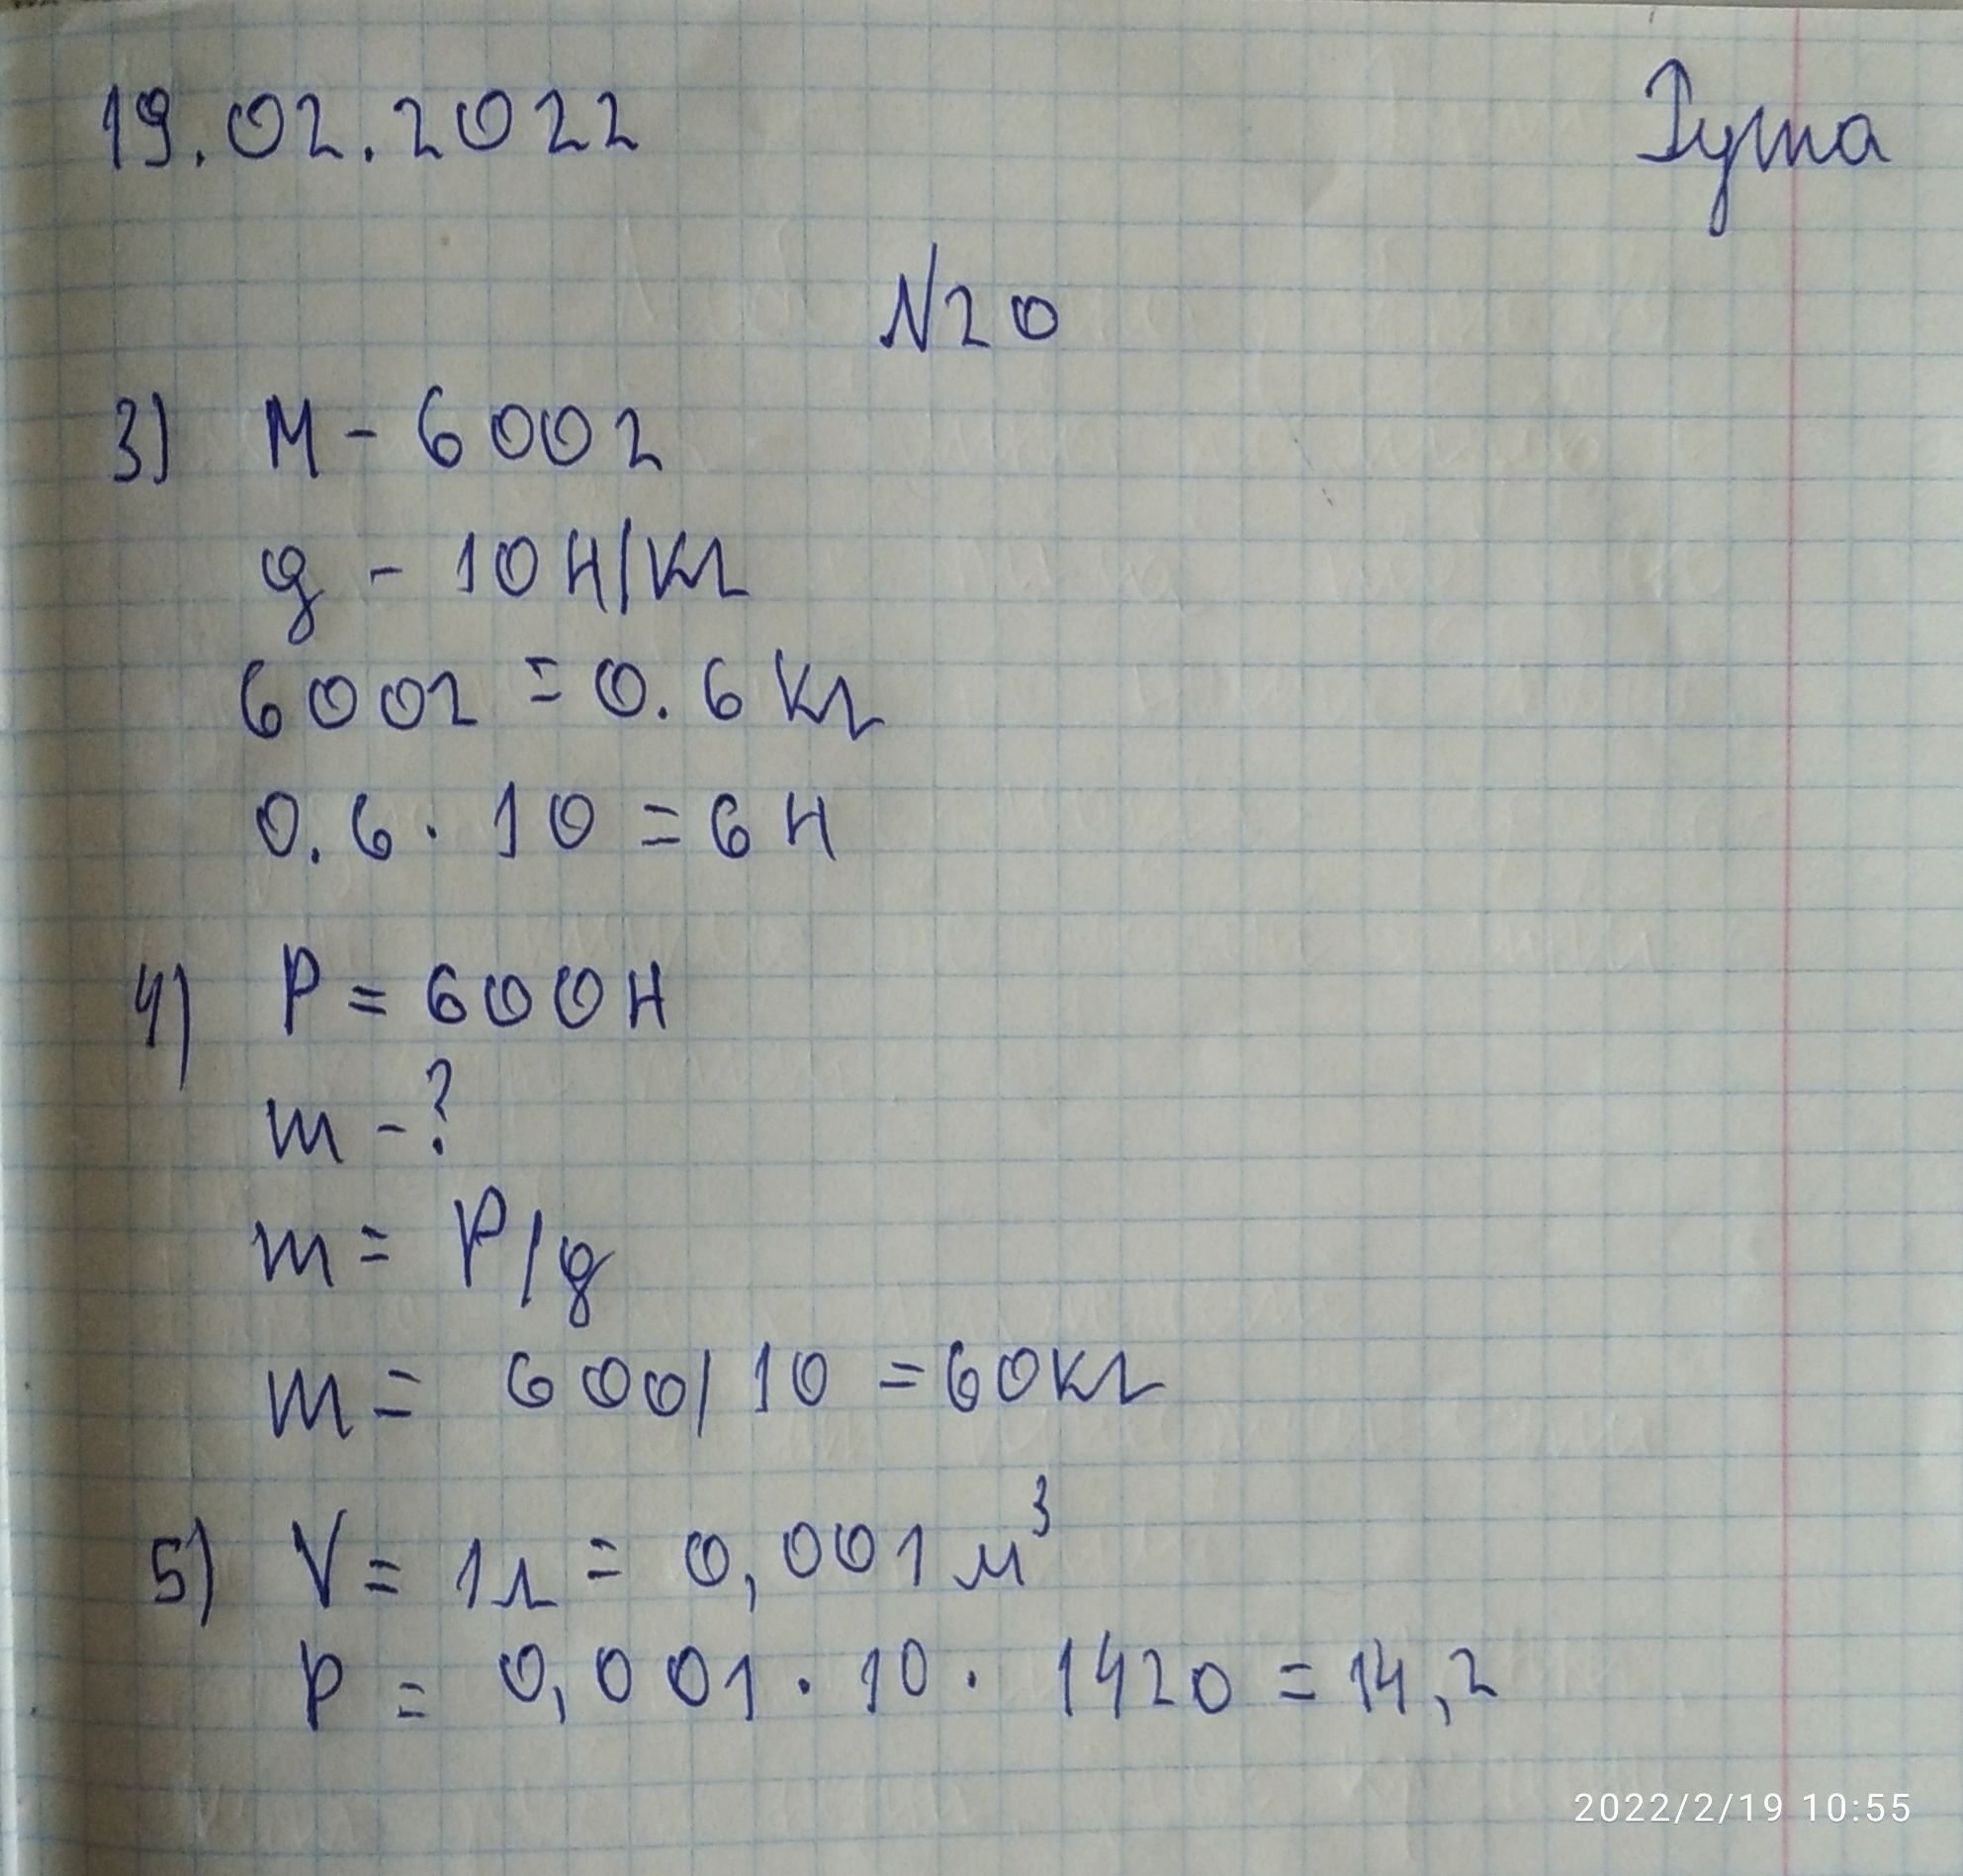 19.02.2022
Рута
N20
3) M - 600г
g - 10 Н/кг
600г = 0.6 кг
0.6 · 10 = 6 Н
4) P = 600 Н
m - ?
m = P/g
m = 600/10 = 60кг
5) V = 1л = 0,001 м³
P = 0,001 · 10 · 1420 = 14,2
2022/2/19 10:55